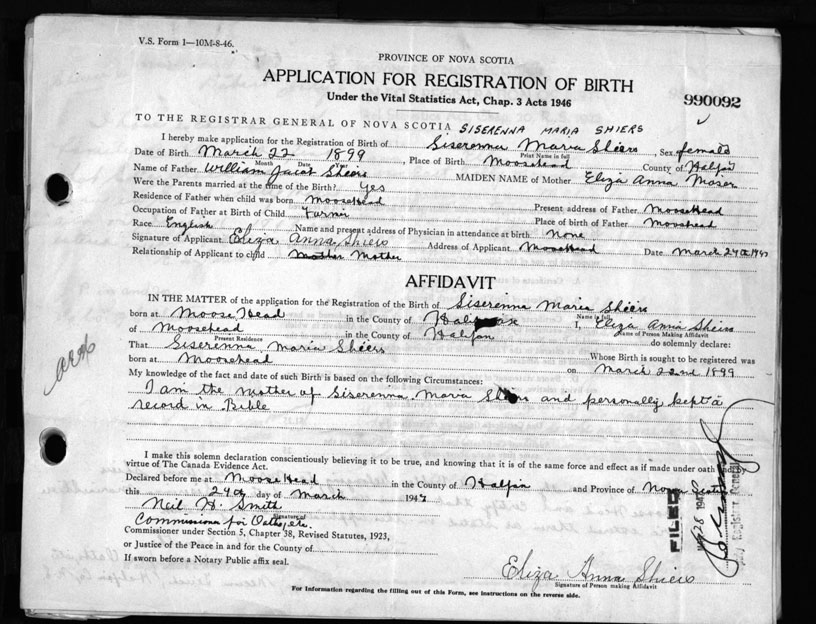 V.S. Form 1—10M-8-46.
PROVINCE OF NOVA SCOTIA
APPLICATION FOR REGISTRATION OF BIRTH
Under the Vital Statistics Act, Chap. 3 Acts 1946
990092
TO THE REGISTRAR GENERAL OF NOVA SCOTIA SISERENNA MARIA SHIERS
I hereby make application for the Registration of Birth of Siserenna Maria Shiers Sex female
Print Name in full
Date of Birth March 22 1899, Place of Birth Moosehead County of Halifax
Month Date Year
Name of Father William Jacob Shiers MAIDEN NAME of Mother Eliza Anna Moser
Were the Parents married at the time of the Birth? Yes
Residence of Father when child was born MooseHead Present address of Father MooseHead
Occupation of Father at Birth of Child Farmer Place of birth of Father Moosehead
Race English Name and present address of Physician in attendance at birth None
Signature of Applicant Eliza Anna Shiers Address of Applicant MooseHead Date March 24th 1947
Relationship of Applicant to child Mother Mother
AFFIDAVIT
IN THE MATTER of the application for the Registration of the Birth of Siserenna Maria Shiers
Name in full
born at Moose Head in the County of Halifax I, Eliza Anna Shiers
Name of Person Making Affidavit
of Moosehead in the County of Halifax do solemnly declare:
Present Residence
That Siserenna Maria Shiers Whose Birth is sought to be registered was
born at Moosehead on March 22nd 1899
My knowledge of the fact and date of such Birth is based on the following Circumstances:
I am the mother of Siserenna Maria Shiers and personally kept a
record in Bible
I make this solemn declaration conscientiously believing it to be true, and knowing that it is of the same force and effect as if made under oath and by
virtue of The Canada Evidence Act.
Declared before me at MooseHead in the County of Halifax and Province of Nova Scotia
this 24th day of March 1947
Neil H. Smith
Signature of
Commissioner for Oaths, etc.
Commissioner under Section 5, Chapter 38, Revised Statutes, 1923,
or Justice of the Peace in and for the County of
If sworn before a Notary Public affix seal.
Eliza Anna Shiers
Signature of Person making Affidavit
For Information regarding the filling out of this Form, see instructions on the reverse side.
FILED